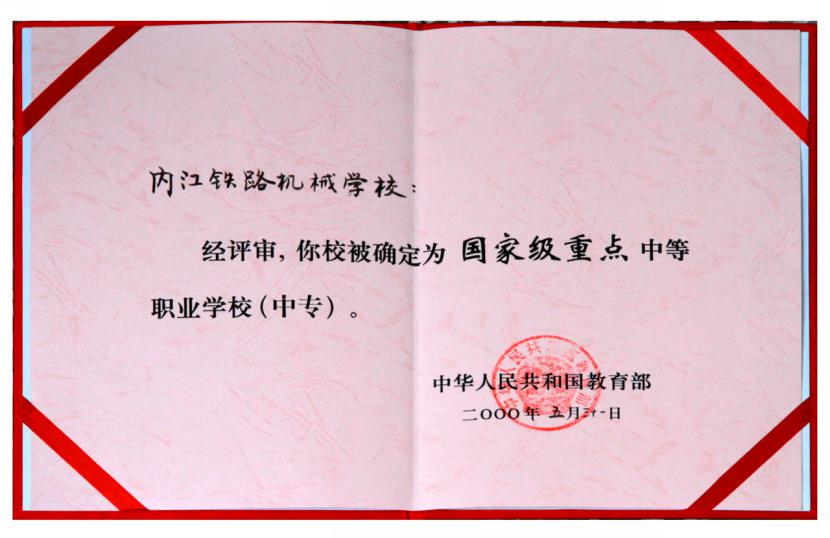 内江铁路机械学校：
经评审，你校被确定为 国家级重点 中等
职业学校（中专）。
中华人民共和国教育部
二〇〇〇年五月三十一日